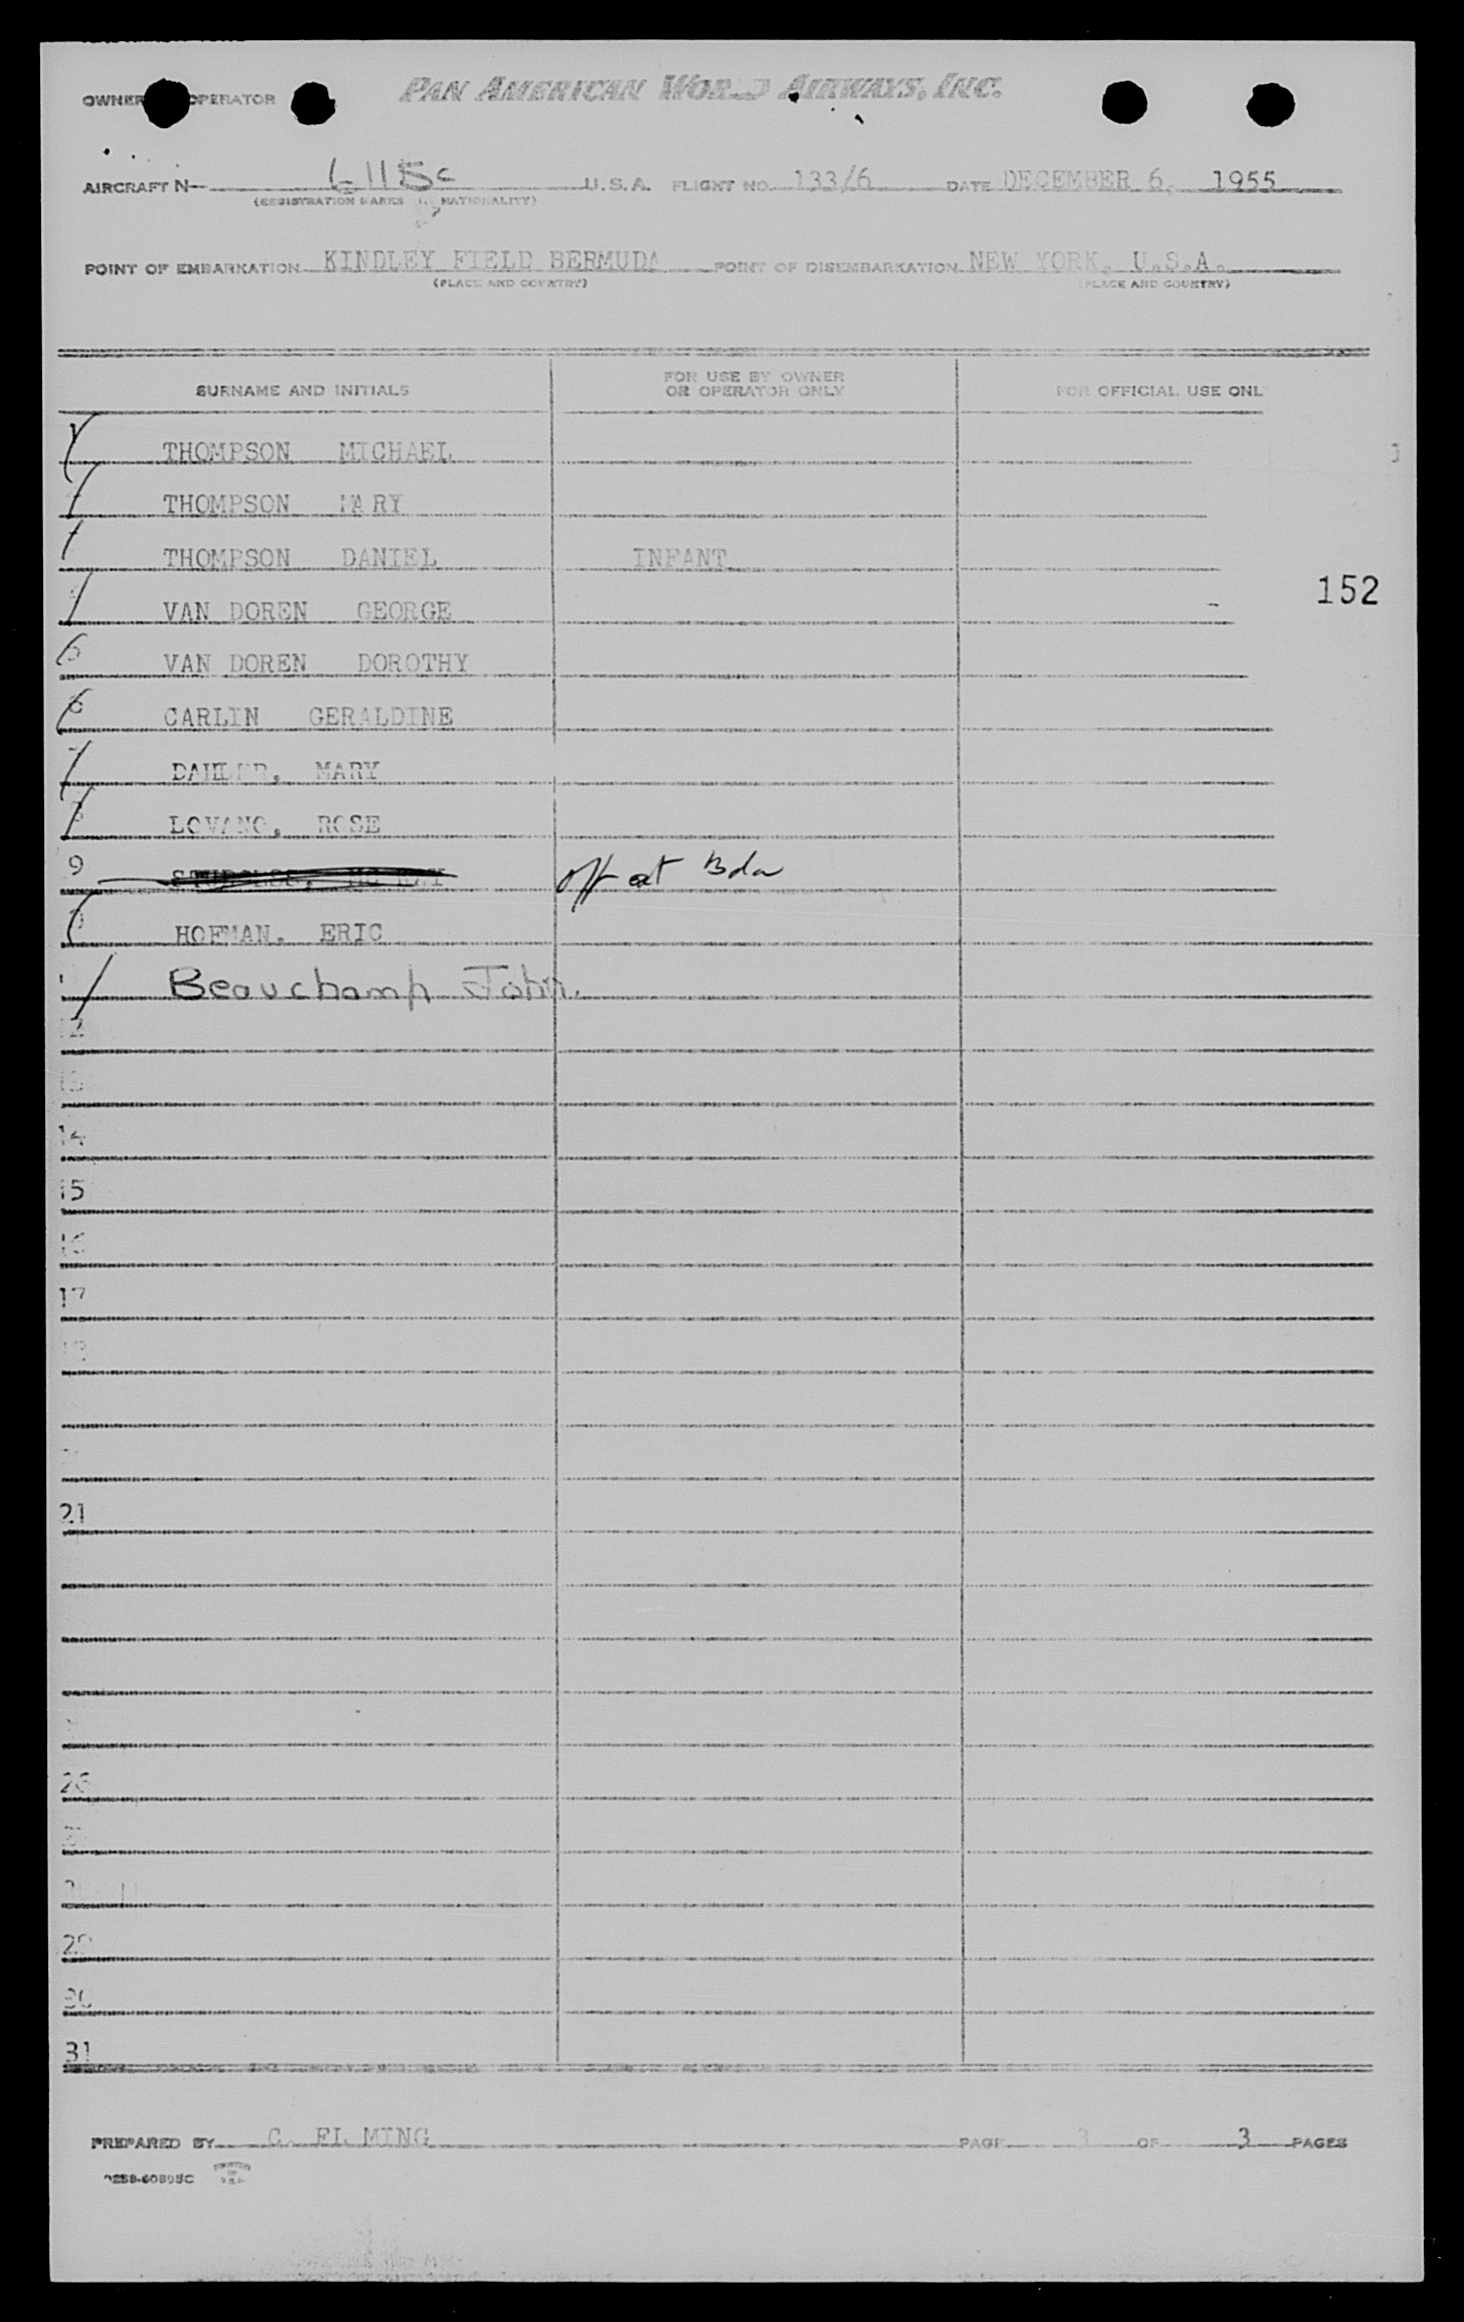 OWNER OPERATOR PAN AMERICAN WORLD AIRWAYS, INC.
AIRCRAFT N- 6115c U.S.A. FLIGHT NO. 133/6 DATE DECEMBER 6, 1955
(REGISTRATION MARKS NATIONALITY)
POINT OF EMBARKATION KINDLEY FIELD BERMUDA POINT OF DISEMBARKATION NEW YORK, U.S.A.
(PLACE AND COUNTRY) (PLACE AND COUNTRY)
SURNAME AND INITIALS FOR USE BY OWNER OR OPERATOR ONLY FOR OFFICIAL USE ONL
THOMPSON MICHAEL
THOMPSON MARY
THOMPSON DANIEL INFANT
152
4 VAN DOREN GEORGE
5 VAN DOREN DOROTHY
6 CARLIN GERALDINE
7 MARY
8 LOVANO, ROSE
9 off at Bda
HOFMAN, ERIC
Beauchamp John.
12
13
14
15
16
17
18
21
26
29
30
31
PREPARED BY C. FL MING PAGE 3 OF 3 PAGES